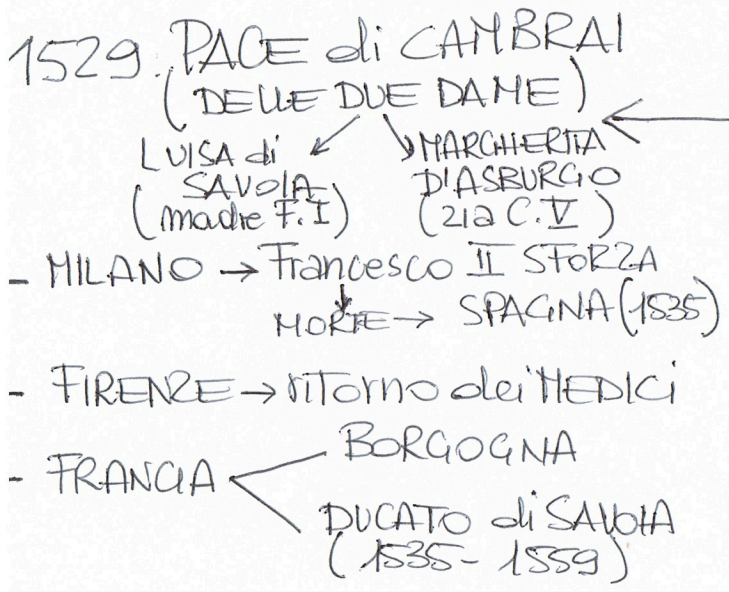 1529. PACE di CAMBRAI
(DELLE DUE DAME)
LUISA di SAVOIA
(madre F. I)
MARGHERITA D'ASBURGO
(zia C. V)
- MILANO → Francesco II SFORZA
MORTE → SPAGNA (1535)
- FIRENZE → ritorno dei MEDICI
- FRANCIA
BORGOGNA
DUCATO di SAVOIA
(1535 - 1559)